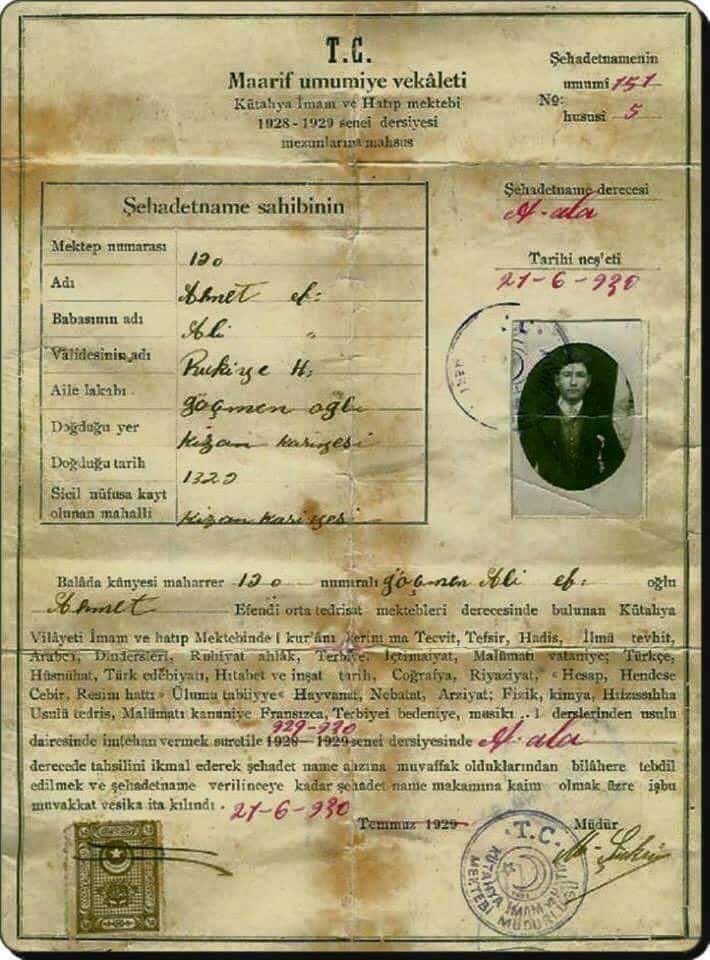 T.C.
Maarif umumiye vekâleti
Kütahya İmam ve Hatıp mektebi
1928-1929 senei dersiyesi
mezunlarına mahsus
Şehadetnamenin
umumî 151
No:
hususi 5
Şehadetname derecesi
A-ala
Tarihi neş'eti
21-6-930
Şehadetname sahibinin
Mektep numarası 120
Adı Ahmet ef:
Babasının adı Ali "
Vâlidesinin adı Rukiye H:
Aile lakabı göçmen oğlu
Doğduğu yer Kizan kariyesi
Doğduğu tarih 1320
Sicil nüfusa kayt
olunan mahalli Kizan kariyesi
Balâda künyesi maharrer 120 numıralı göçmen Ali ef: oğlu
Ahmet Efendi orta tedrisat mektebleri derecesinde bulunan Kütahya
Vilâyeti İmam ve hatıp Mektebinde ( kur'ânı kerim ma Tecvit, Tefsir, Hadis, İlmü tevhit,
Arabca, Dindersleri, Ruhiyat ahlâk, Terbiye. İçtimaiyat, Malûmatı vataniye; Türkçe,
Hüsnühat, Türk edebiyatı, Hitabet ve inşat tarih, Coğrafya, Riyaziyat, « Hesap, Hendese
Cebir, Resim hattı » Ülumu tabiiyye « Hayvanat, Nebatat, Arziyat; Fizik, kimya, Hıfzıssıhha
Usulü tedris, Malûmatı kanuniye Fransızca, Terbiyei bedeniye, musiki derslerinden usulu
929-930
dairesinde imtehan vermek suretile 1928-1929 senei dersiyesinde A-ala
derecede tahsilini ikmal ederek şehadet name ahzına muvaffak olduklarından bilâhere tebdil
edilmek ve şehadetname verilinceye kadar şehadet name makamına kaim olmak üzre işbu
muvakkat vesika ita kılındı. 21-6-930
Temmuz 1929 Müdür
T.C.
KÜTAHYA İMAM VE
MEKTEBİ MÜDÜR